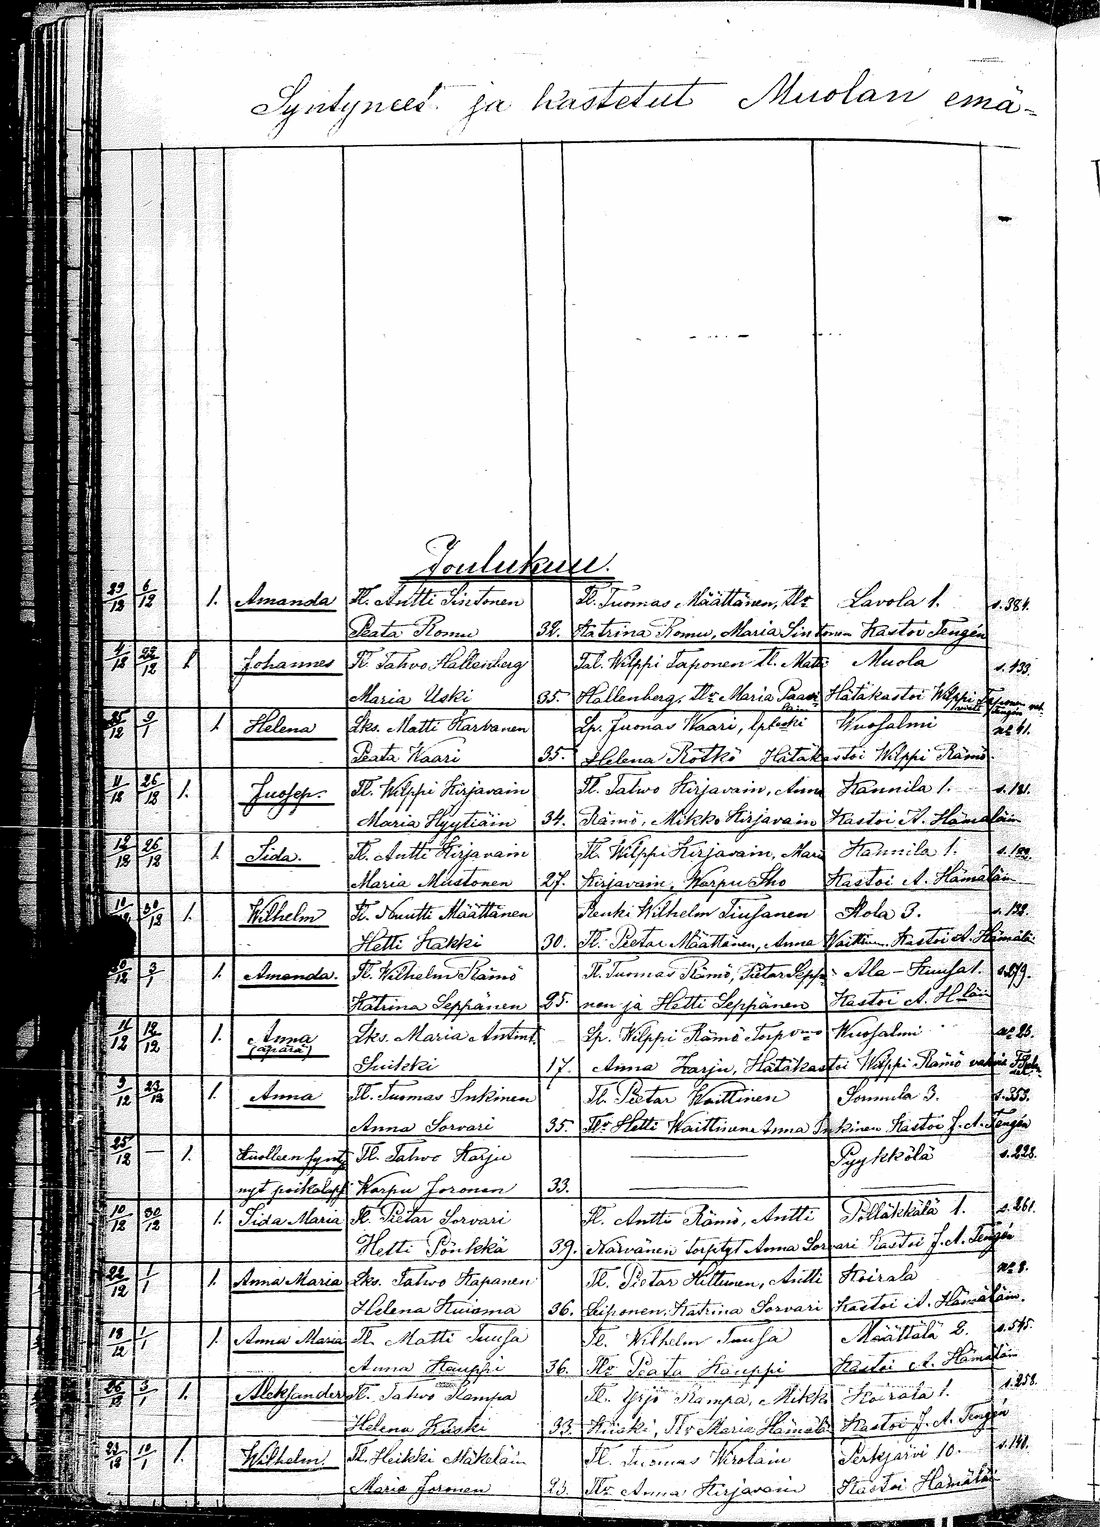 Syntyneet ja kastetut Muolan emä=
Joulukuu.
29/12 6/12 1. Amanda Tl. Antti Sintonen Tl. Tuomas Määttänen, Tlr Lavola 1. s. 384.
Beata Romu 32. Katrina Romu, Maria Sintonen Kastoi Tengén
4/12 22/12 1 Johannes Tl. Tahvo Hallenberg Tal. Wilppi Taponen Tl. Matti Muola s. 433.
Maria Uski 35. Hallenberg, Tlr Maria Hätäkastoi Wilppi Taponen
25/12 9/1 1 Helena Lks. Matti Karvanen Lp. Juonas Kaari, lp leski Wuosalmi no 41.
Beata Kaari 35. Helena Rotkö Hätäkastoi Wilppi Rämö.
11/12 26/12 1. Juosep. Tl. Wilppi Kirjavain Tl. Tahwo Kirjavain, Anna Kannila 1. s. 181.
Maria Hyytiäin 34. Rämö, Mikko Kirjavain Kastoi A. Hämäläin
12/12 26/12 1. Iida. Tl. Antti Kirjavain Tl. Wilppi Kirjavain, Mari Kannila 1.
Maria Mustonen 27. Kirjavain, Warpu Iho Kastoi A. Hämäläin
10/12 30/12 1. Wilhelm Tl. Nuutti Määttänen Renki Wilhelm Tiusanen Ilola 3. s. 132.
Hetti Kakki 30. Tl. Pietar Määttänen, Anna Waittinen Kastoi A. Hämäläi
30/12 3/1 1. Amanda. Tl. Wilhelm Rämö Tl. Tuomas Rämö, Pietar Seppä- Ala-Kuusa 1. s. 279.
Katrina Seppänen 25. nen ja Hetti Seppänen Kastoi A. Hläin
11/12 12/12 1. Anna Lks. Maria Antint. Lp. Wilppi Rämö Torp vmo Wuosalmi no 25.
(äpärä)
Suikki 17. Anna Karju, Hätäkastoi Wilppi Rämö
9/12 23/12 1. Anna Tl. Tuomas Inkinen Tl. Pietar Waittinen Sormula 3. s. 353.
Anna Sorvari 35. Tlr Hetti Waittinen Anna Inkinen Kastoi J. A. Tengén
25/12 — 1. Kuolleen synty Tl. Tahvo Karju —— Pyykkölä s. 228.
nyt poikalapsi Warpu Joronen 33. ——
10/12 30/12 1. Iida Maria Tl. Pietar Sorvari Tl. Antti Rämö, Antti Pölläkkälä 1. s. 261.
Hetti Pönkkä 39. Narvänen torpityt Anna Sorvari Kastoi J. A. Tengén
22/12 1/1 1. Anna Maria Lks. Tahvo Kapanen Tl. Pietar Hiltunen, Antti Koirala no 8.
Helena Kuisma 36. Seiponen, Katrina Sorvari Kastoi A. Hämäläin.
18/12 1/1 1. Anna Maria Tl. Matti Tuusa Tl. Wilhelm Tuusa Määttälä 2. s. 545.
Anna Kauppi 36. Tlr Beata Kauppi Kastoi A. Hämäläin
26/12 3/1 1. Aleksander Tl. Tahvo Kampa Tl. Yrjö Kampa, Mikko Koirala 1. s. 258.
Helena Kiiski 33. Kiiski, Tlr Maria Hämälä Kastoi J. A. Tengén
23/12 10/1 1. Wilhelm. Tl. Heikki Mäkeläin Tl. Tuomas Wirolain Perkjärvi 10. s. 141.
Maria Joronen 23. Tlr Anna Kirjavain Kastoi Hämäläi